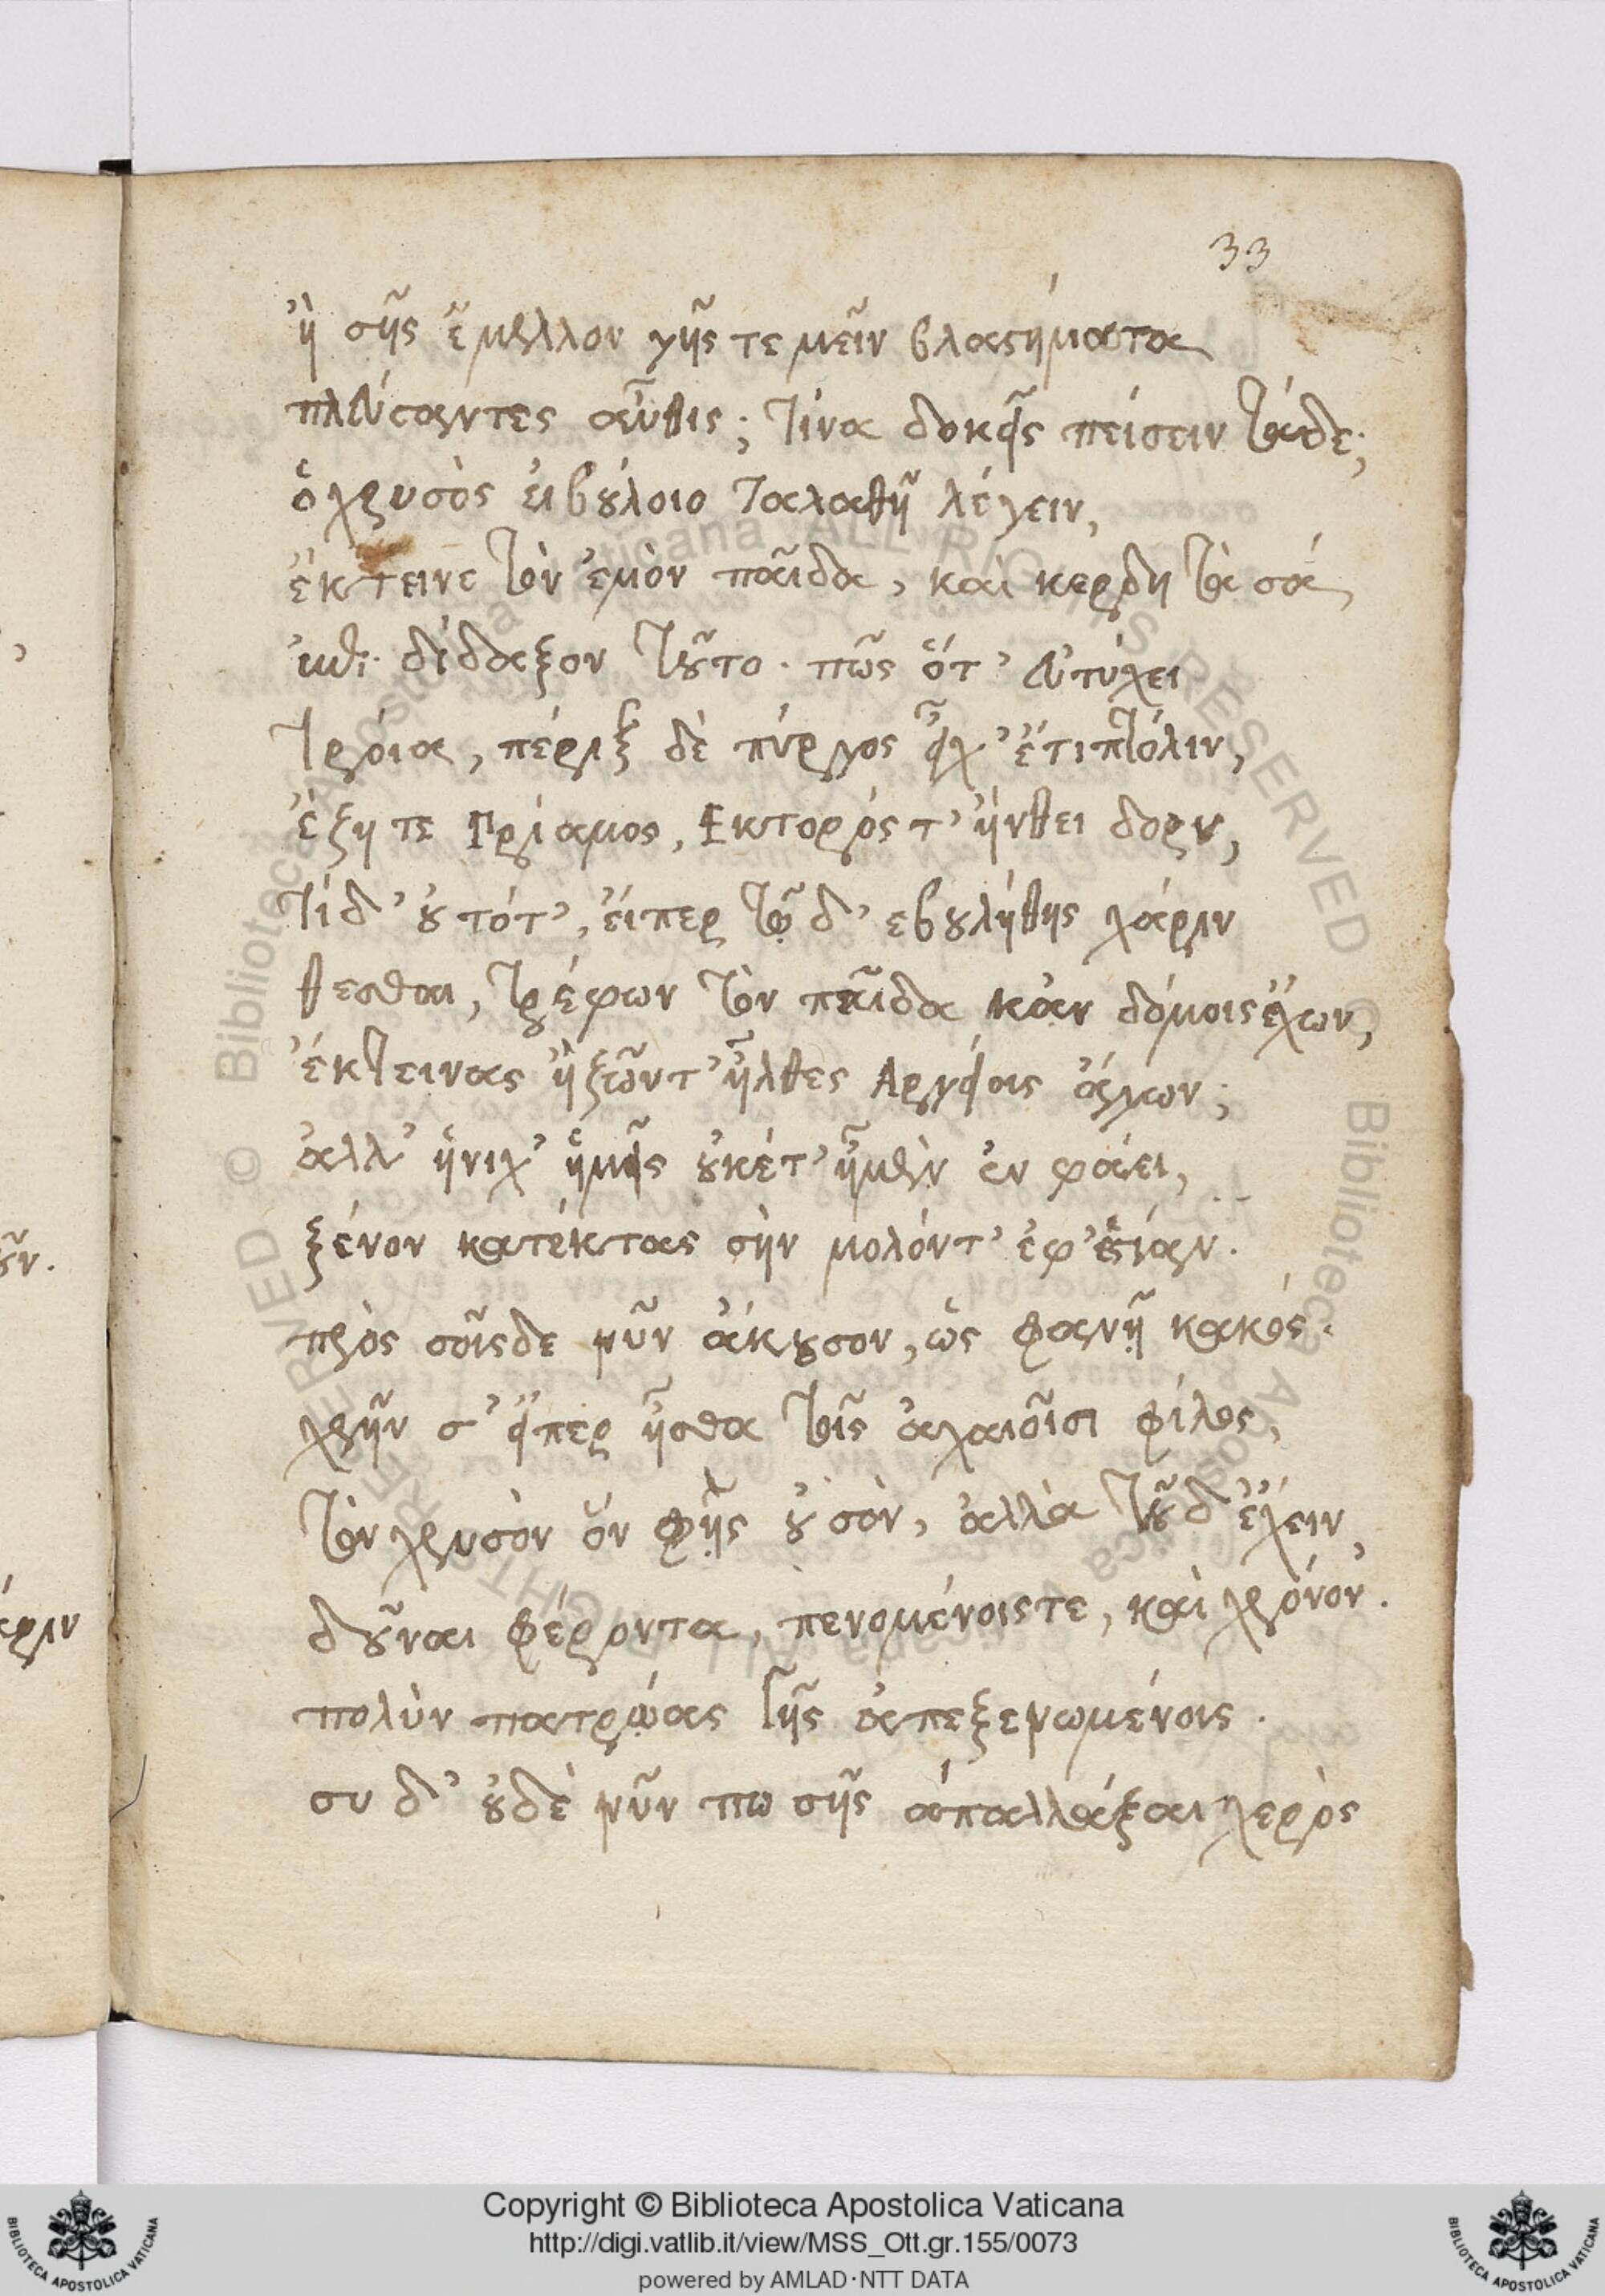 33
ἢ σῆς ἔμελλον γῆς τεμεῖν βλαστήματα
πλεύσαντες αὖθις; τίνα δοκεῖς πείσειν τάδε;
ὁ χρυσὸς εἰ βούλοιο ταλαθῆ λέγειν,
ἔκτεινε τὸν ἐμὸν παῖδα, καὶ κερδη τὰ σά,
ἐπεὶ δίδαξον τοῦτο. πῶς ὅτ' εὐτύχει
τροία, πέριξ δὲ πύργος εἶχ' ἔτι πτόλιν,
ἔζη τε Πρίαμος, Εκτορός τ' ἤνθει δορυ,
τί δ' οὐ τότ', εἴπερ τῷδ' εβουλήθης χάριν
θεσθαι, τρέφων τὸν παῖδα κἀν δόμοις ἔχων,
ἔκτεινας ἢ ζῶντ' ἦλθες Αργείοις ἄγων;
ἀλλ' ἡνίχ' ἡμεῖς οὐκέτ' ἦμὲν ἐν φάει,
ξένον κατέκτας σὴν μολόντ' ἐφ' ἑστίαν.
πρὸς τοῖσδε νῦν ἄκουσον, ὡς φανῇ κακός.
χρῆν σ' εἴπερ ἦσθα τοῖς ἀχαιοῖσι φίλος,
τὸν χρυσὸν ὃν φῂς οὐ σὸν, ἀλλὰ τοῦδ' ἔχειν,
δοῦναι φέροντα, πενομένοις τε, καὶ χρόνον.
πολὺν πατρῴας γῆς ἀπεξενωμένοις.
συ δ' οὐδὲ νῦν πω σῆς ἀπαλλάξαι χερὸς
Copyright © Biblioteca Apostolica Vaticana
http://digi.vatlib.it/view/MSS_Ott.gr.155/0073
powered by AMLAD·NTT DATA